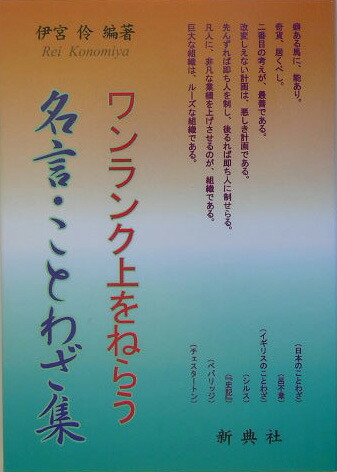 伊宮 伶 編著
Rei Konomiya
ワンランク上をねらう
名言・ことわざ集
癖ある馬に、能あり。
奇貨、居くべし。
二番目の考えが、最善である。
改変しえない計画は、悪しき計画である。
先んずれば即ち人を制し、後るれば即ち人に制せらる。
凡人に、非凡な業績を上げさせるのが、組織である。
巨大な組織は、ルーズな組織である。
(日本のことわざ)
(呂不韋)
(イギリスのことわざ)
(シルス)
(『史記』)
(ベバリッジ)
(チェスタートン)
新典社